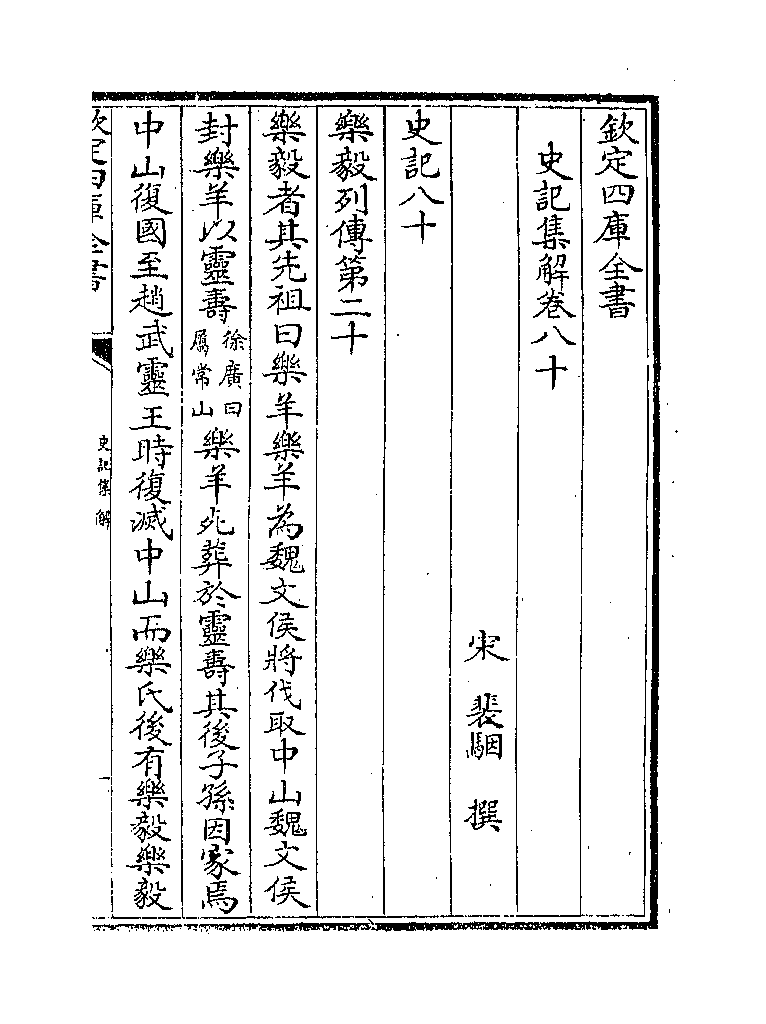 欽定四庫全書
史記集解卷八十
宋 裴駰 撰
史記八十
樂毅列傳第二十
樂毅者其先祖曰樂羊樂羊為魏文侯將伐取中山魏文侯
封樂羊以靈壽徐廣曰屬常山樂羊死葬於靈壽其後子孫因家焉
中山復國至趙武靈王時復滅中山而樂氏後有樂毅樂毅
欽定四庫全書 史記集解 一